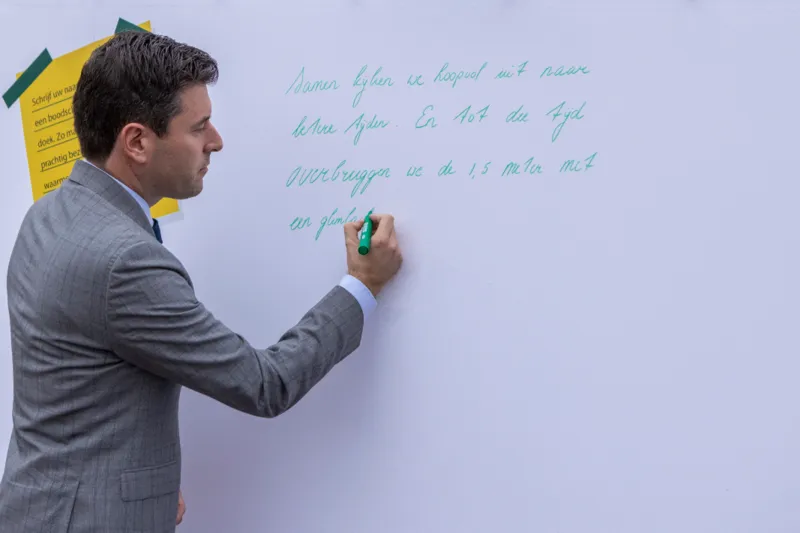 Schrijf uw naa
een boodsch
doek. Zo ma
prachtig bez
waarm
Samen kijken we hoopvol uit naar
betere tijden. En tot die tijd
overbruggen we de 1,5 meter met
een glimla